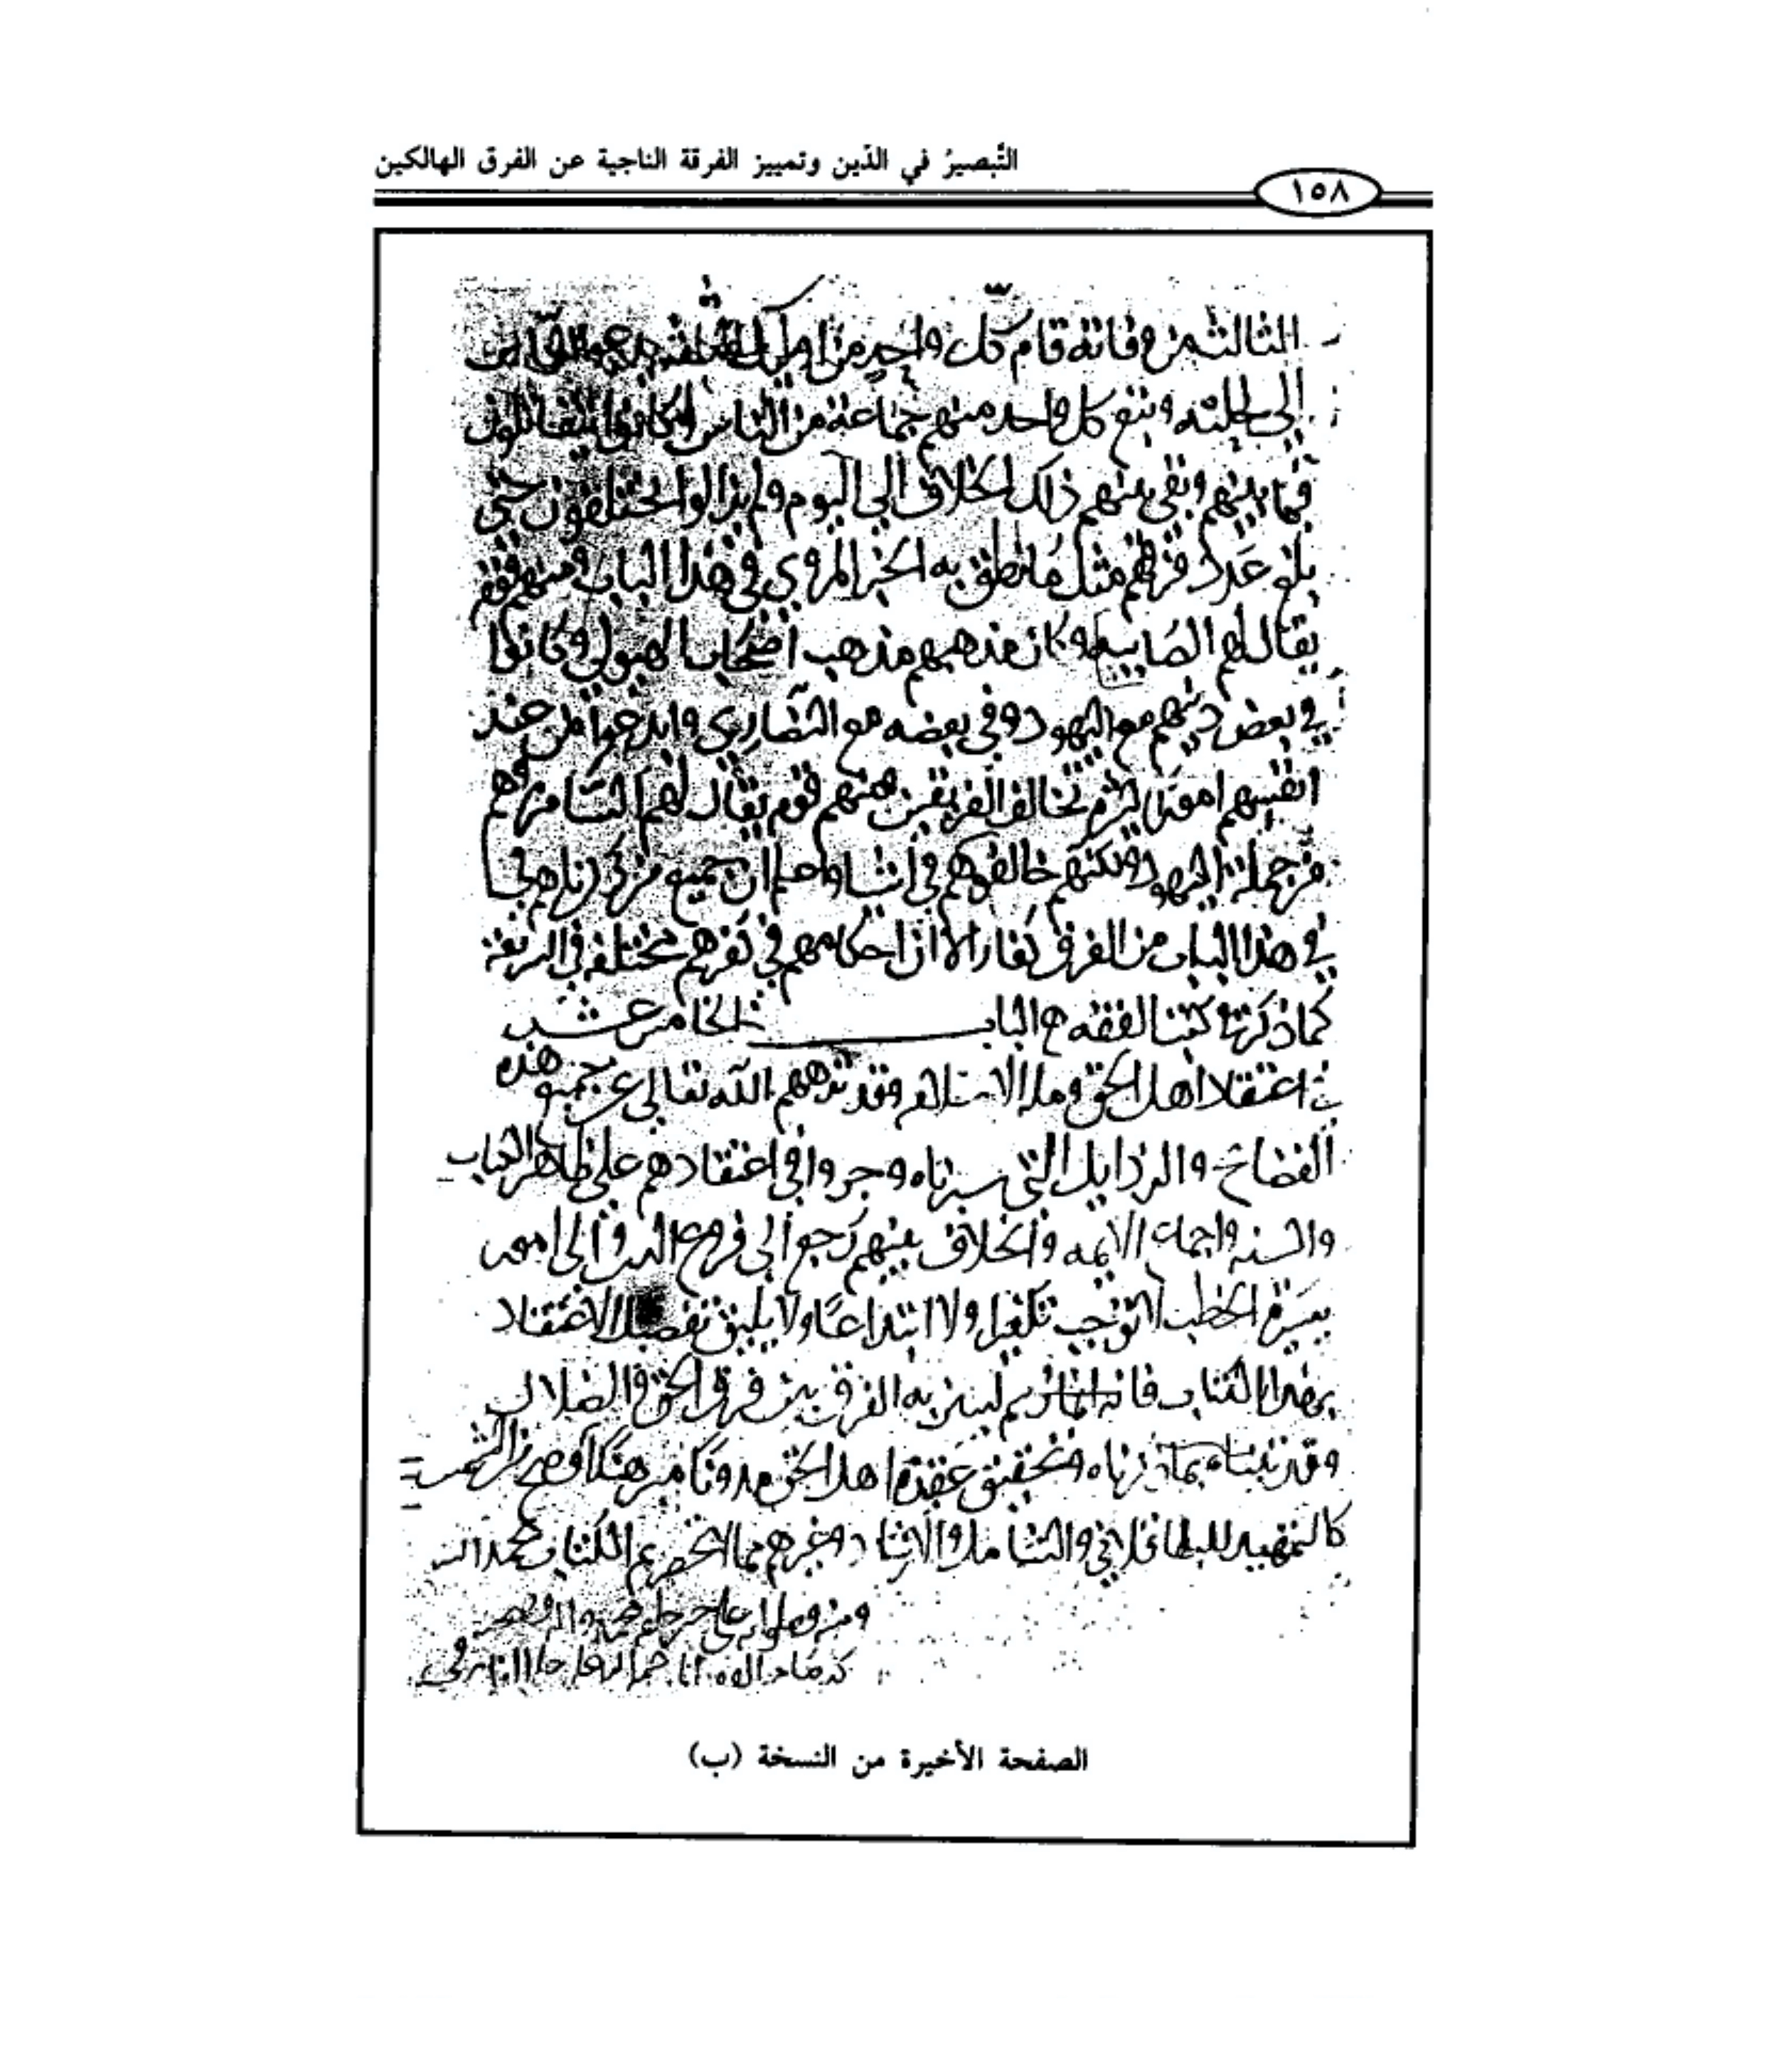 التَّبصيرُ في الدّين وتمييز الفرقة الناجية عن الفرق الهالكين
١٥٨
الثالث من وفاته قام كل واحد من
إلى طلبته وتبع كل واحد منهم جماعة من الناس وكانوا يتقاتلون
فيما بينهم وبقى بينهم ذلك الخلاف الى اليوم ولم يزالوا يختلفون حتى
بلغ عدد فرقهم مثل ما نطق به الخبر المروي في هذا الباب ومنهم قوم
يقال لهم الصابيه وكان مذهبهم مذهب اصحاب الهيولى وكانوا
في بعض دينهم مع اليهود وفي بعضه مع النصارى وابدعوا من عند
انفسهم امورا لهم تخالف الفريقين ومنهم قوم يقال لهم السامره هم
من جملة اليهود ولكنهم خالفوهم في اشيا واعلم ان جميع من ذكرناهم
في هذا الباب من الفرق كفار الا ان احكامهم في كفرهم مختلفه في الشريعة
كما ذكرته كتب الفقه الباب الخامس عشر
في اعتقاد اهل الحق وقد نزههم الله تعالى عن جميع هذه
الفضائح والرذايل التي سبرناه وجروا في اعتقادهم على ظاهر الكتاب
والسنه واجماع الايمه والخلاف بينهم رجع الى فروع الدين والى امور
يسيرة الخطب لا توجب تكفيرا ولا ابتداعا ولا يليق تفصيل الاعتقاد
بهذا الكتاب فانه انما رسم ليبين به الفرق بين فرق الحق والضلال
وقد بيناه بما ذكرناه وتحقيق عقيدة اهل الحق مدونا مبرهنا اوضح من الشمس
كالتمهيد للباقلاني والشامل والارشاد وغيرهم مما انحصر تم الكتاب بحمد الله
الصفحة الأخيرة من النسخة (ب)